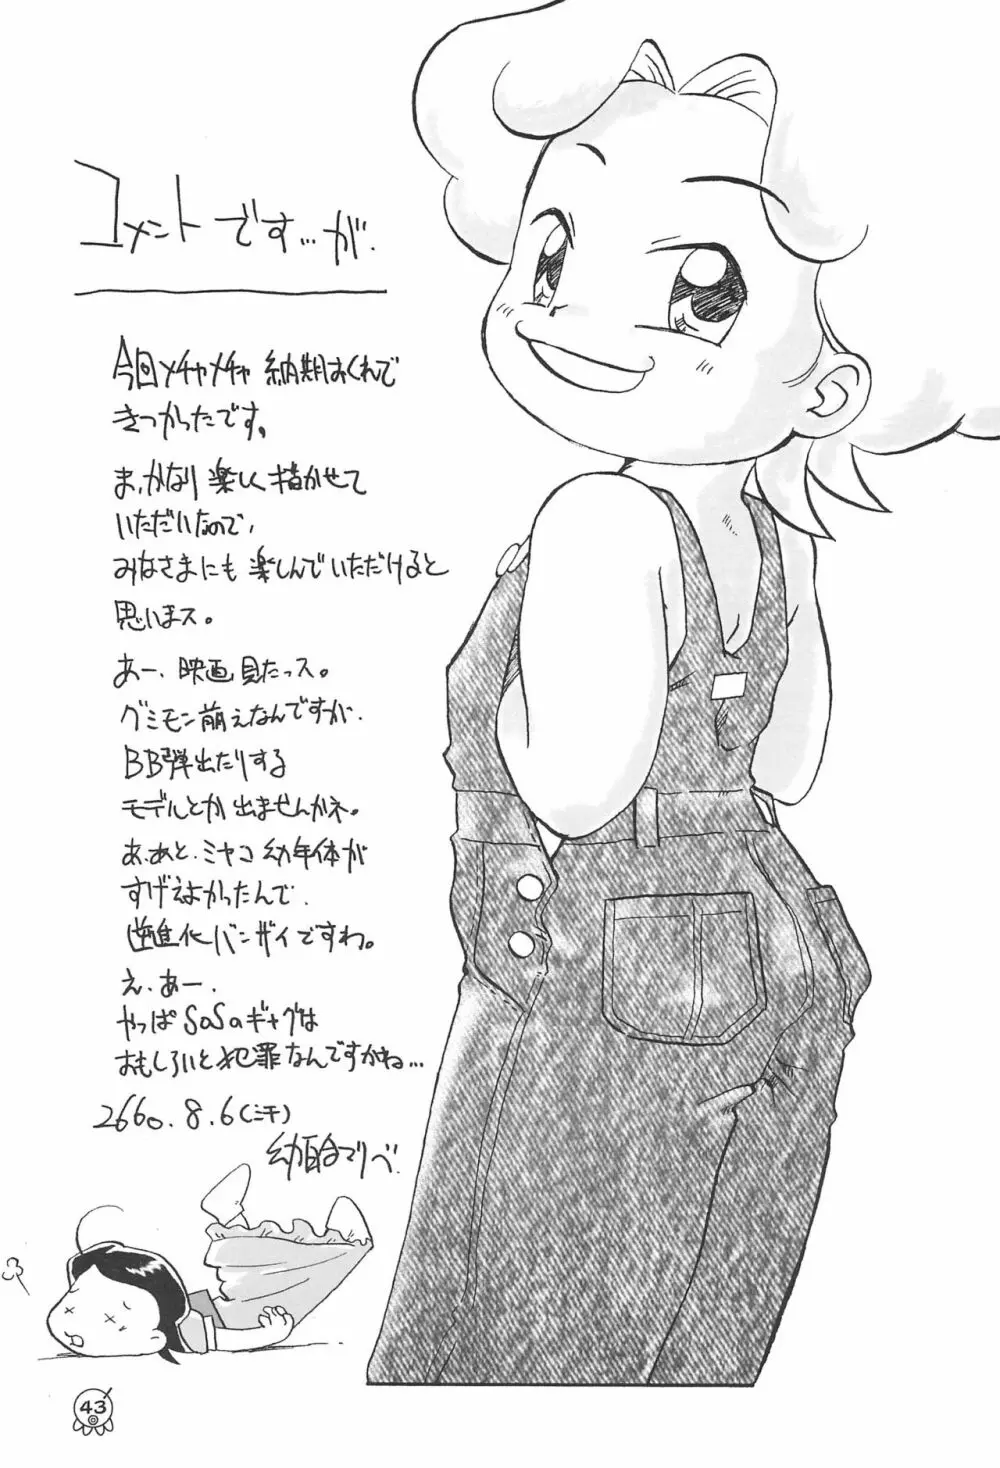 コメントです…が.
今回メチャメチャ 納期おくれで
きつかったです。
ま、かなり 楽しく描かせて
いただいたので、
みなさまにも 楽しんでいただけると
思いまス。
あー、映画見たっス。
グミモン萌えなんですが、
BB弾出たりする
モデルとか出ませんかネ。
あ、あと、ミヤコ 幼年体が
すげえよかったんで、
逆進化バンザイですわ。
え、あー、
やっぱSaSaギャグは
おもしろいと犯罪なんですかね…
2000. 8. 6(汗)
43